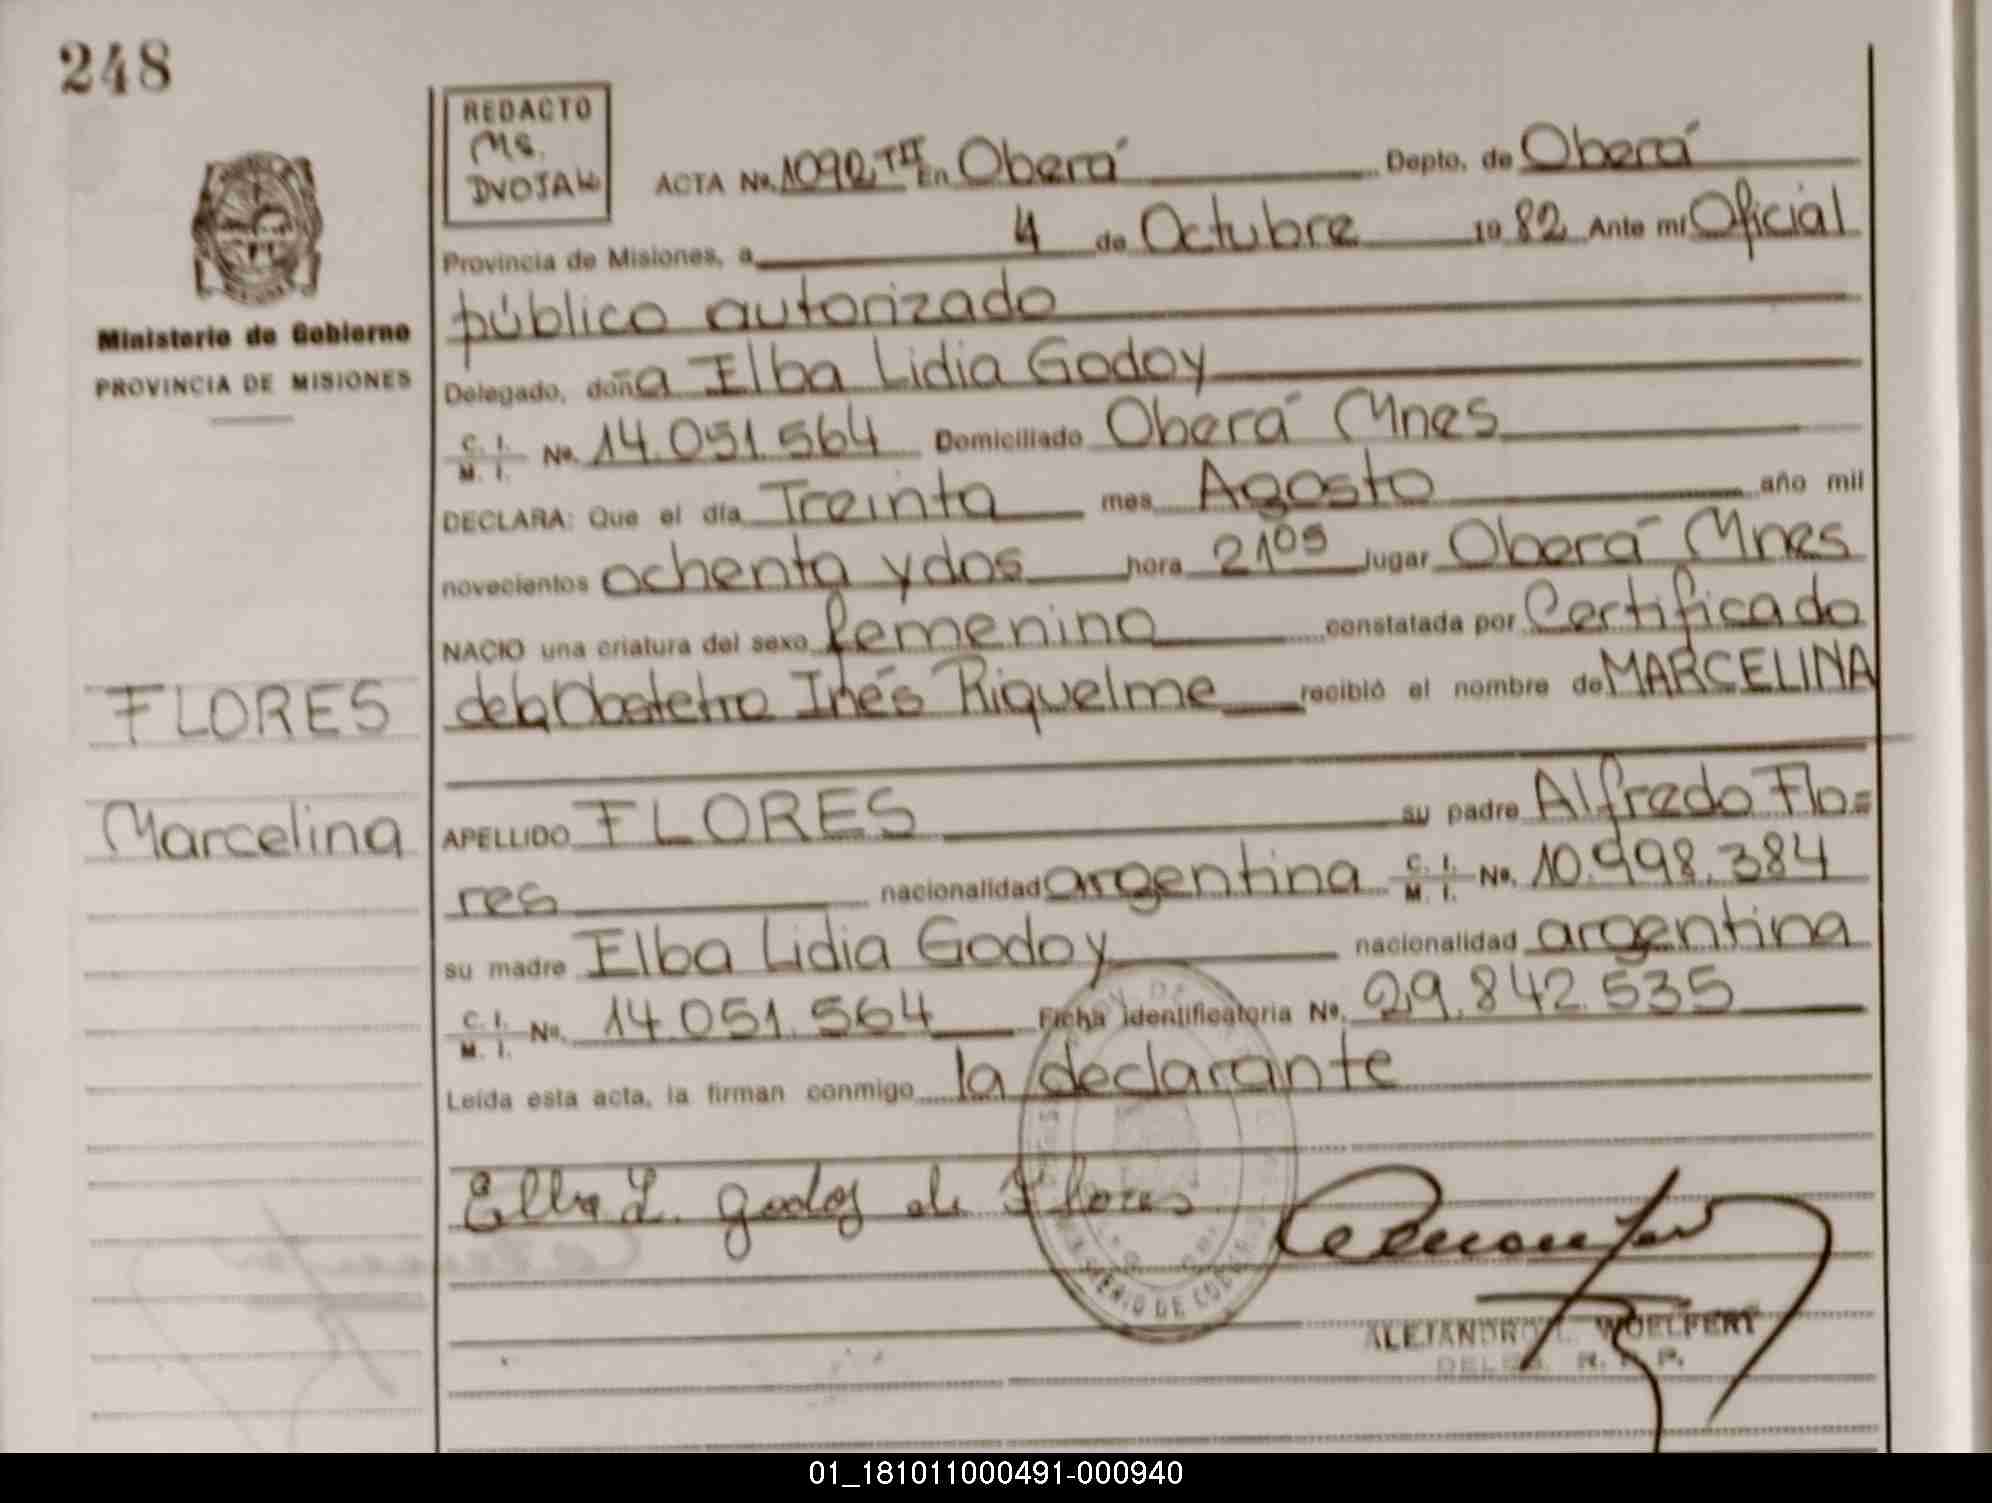 248
REDACTO
Ms.
DVOJAK
ACTA No. 1092 TII En Oberá Depto. de Oberá
Provincia de Misiones, a 4 de Octubre 19 82 Ante mí Oficial
público autorizado
Ministerio de Gobierno
PROVINCIA DE MISIONES
Delegado, doña Elba Lidia Godoy
C. I. M. I. No. 14.051.564 Domiciliado Oberá Mnes
DECLARA: Que el día Treinta mes Agosto año mil
novecientos ochenta y dos hora 21 05 lugar Oberá Mnes
NACIO una criatura del sexo femenino constatada por Certificado
de la Obstetra Inés Riquelme recibió el nombre de MARCELINA
FLORES
Marcelina
APELLIDO FLORES su padre Alfredo Flo=
res nacionalidad argentina C. I. M. I. No. 10.998.384
su madre Elba Lidia Godoy nacionalidad argentina
C. I. M. I. No. 14.051.564 Ficha identificatoria No. 29.842.535
Leída esta acta, la firman conmigo la declarante
Elba L. Godoy de Flores
ALEJANDRO L. WOELFERT
DELEG. R. P. P.
01_181011000491-000940